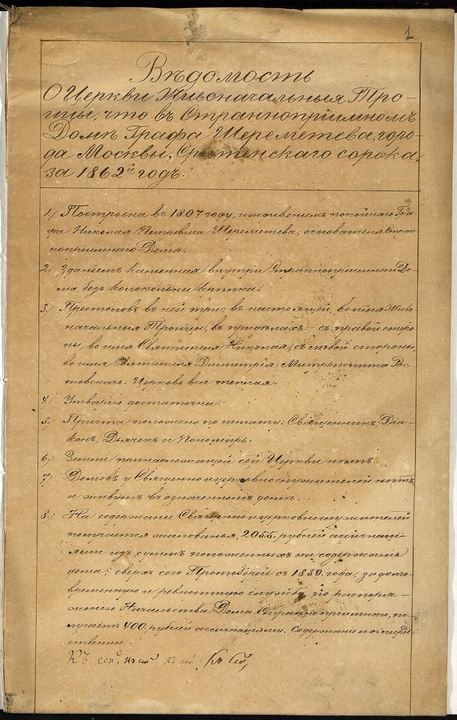 1
Вѣдомость
О Церкви Живоначальныя Тро-
ицы, что въ Странноприимномъ
Домѣ Графа Шереметева, горо-
да Москвы, Срѣтенскаго сорока,
за 1862й годъ.
1) Построена въ 1807 году, иждивеніемъ покойнаго Гра-
фа Николая Петровича Шереметева, основателя Стран
нопріимнаго Дома.
2. Зданіемъ каменная внутри Страннопріимнаго До-
ма, безъ колокольни
3) Престоловъ въ ней три: въ настоящей, во имя Живо
начальныя Троицы, въ придѣлахъ: съ правой сторо-
ны, во имя Святителя Николая, съ лѣвой стороны,
во имя Святителя Димитрія Митрополита Рос
товскаго. Церковь вся теплая.
4. Утварію достаточна.
5. Причта положено по штату: Священникъ, Діа
конъ, Дьячекъ и Пономарь.
6) Земли принадлежащей сей Церкви нѣтъ.
7) Домовъ у Священно и церковнослужителей нѣтъ,
а живутъ въ означенномъ домѣ.
8) На содержаніе Священно и церковнослужителей
получается жалованья, 2055. рублей ассигнаці-
ями изъ суммъ положенныхъ на содержаніе
дома; сверхъ сего Протоіерей съ 1850. года, за долго
временную и ревностную службу по распоря-
женію Начальства Дома Страннопріимнаго, по
лучаетъ 400. рублей ассигнаціями. Содержаніе